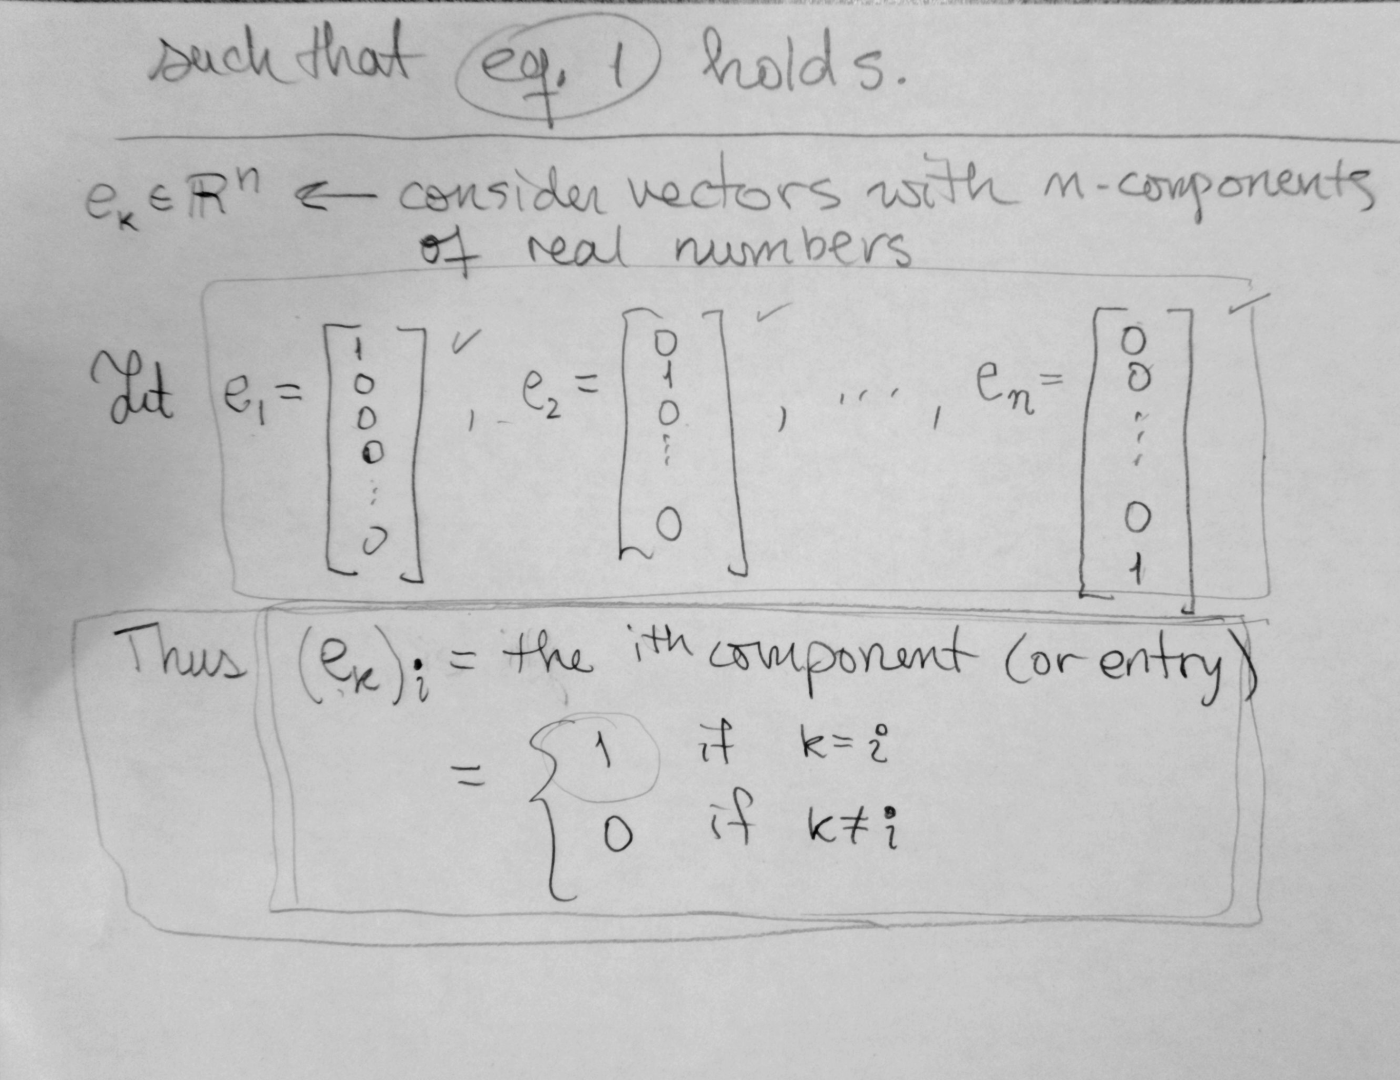 such that eq. 1 holds.
e_k ∈ ℝ^n ← consider vectors with n-components
of real numbers
Let e_1 = [1 0 0 0 ⋮ 0] ✓, e_2 = [0 1 0 ⋮ 0] ✓, ..., e_n = [0 0 ⋮ 0 1] ✓
Thus (e_k)_i = the ith component (or entry)
= { 1 if k = i
0 if k ≠ i